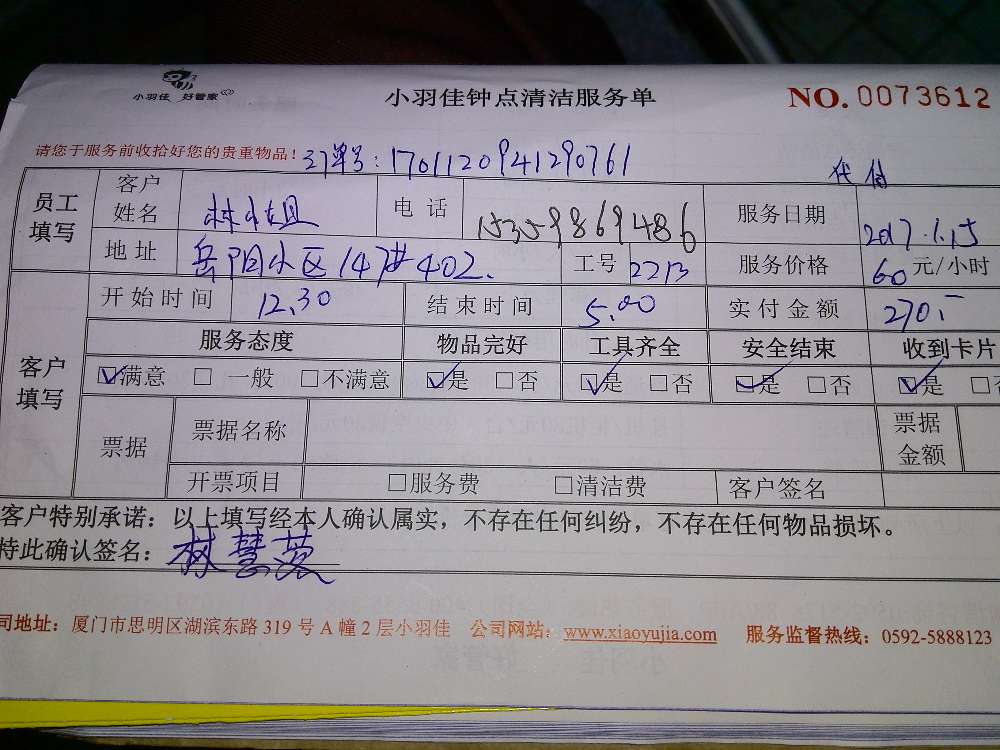 小羽佳 好管家
小羽佳钟点清洁服务单
NO. 0073612
请您于服务前收拾好您的贵重物品！ 订单号：1701120941290761
代付
员工填写
客户姓名 林小姐 电话 15359869486 服务日期 2017.1.15
地址 岳阳小区147#402. 工号 2213 服务价格 60元/小时
客户填写
开始时间 12.30 结束时间 5.00 实付金额 270.-
服务态度 物品完好 工具齐全 安全结束 收到卡片
☑满意 □一般 □不满意 ☑是 □否 ☑是 □否 ☑是 □否 ☑是 □否
票据 票据名称 票据金额
开票项目 □服务费 □清洁费 客户签名
客户特别承诺：以上填写经本人确认属实，不存在任何纠纷，不存在任何物品损坏。
持此确认签名：林慧
司地址：厦门市思明区湖滨东路 319 号 A 幢 2 层小羽佳 公司网站：www.xiaoyujia.com 服务监督热线：0592-5888123